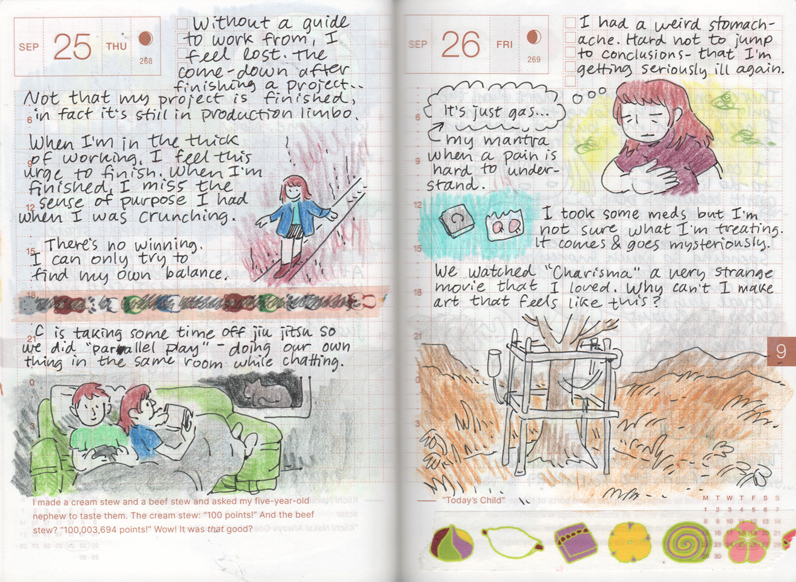 SEP 25 THU
268
Without a guide
to work from, I
feel lost. The
come-down after
finishing a project..
Not that my project is finished,
in fact it's still in production limbo.
When I'm in the thick
of working, I feel this
urge to finish. When I'm
finished, I miss the
sense of purpose I had
when I was crunching.
There's no winning.
I can only try to
find my own balance.
C is taking some time off jiu jitsu so
we did "parallel play" - doing our own
thing in the same room while chatting.
I made a cream stew and a beef stew and asked my five-year-old
nephew to taste them. The cream stew: "100 points!" And the beef
stew? "100,003,694 points!" Wow! It was that good?
6
9
12
15
18
21
0
3
SEP 26 FRI
269
I had a weird stomach-
ache. Hard not to jump
to conclusions- that I'm
getting seriously ill again.
It's just gas...
my mantra
when a pain is
hard to under-
stand.
I took some meds but I'm
not sure what I'm treating.
It comes & goes mysteriously.
We watched "Charisma" a very strange
movie that I loved. Why can't I make
art that feels like this?
6
9
12
15
18
21
0
3
9
"Today's Child"
M T W T F S S